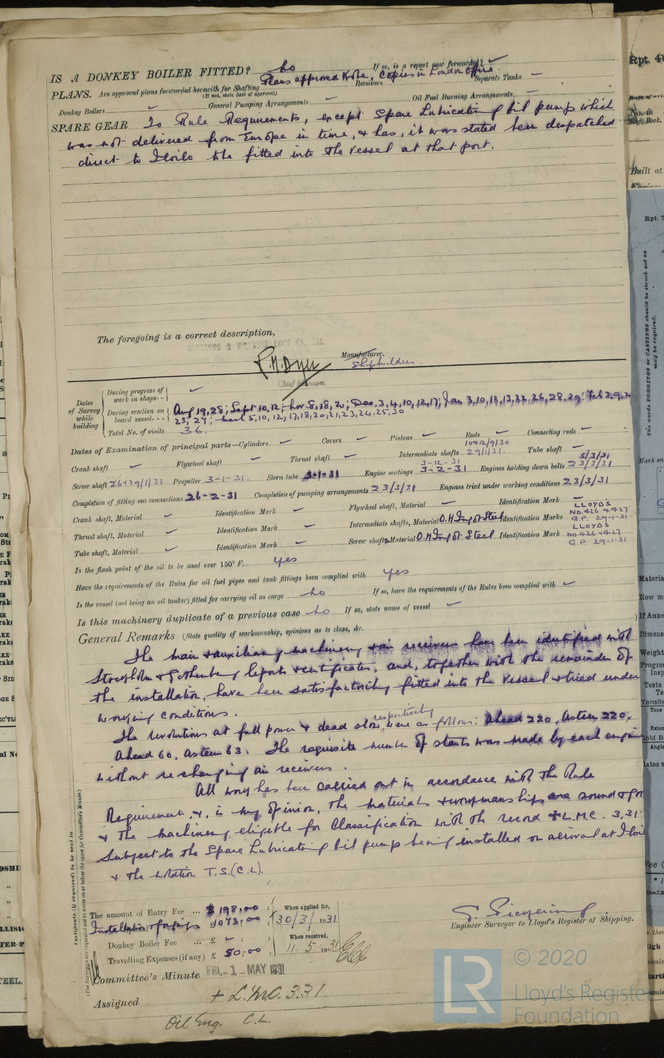 IS A DONKEY BOILER FITTED? No If so, is a report now forwarded?
PLANS. Are approved plans forwarded herewith for Shafting Plans approved Kobe, Copies in London Office. Receivers Separate Tanks
(If not, state date of approval)
Donkey Boilers General Pumping Arrangements Oil Fuel Burning Arrangements
SPARE GEAR To Rule Requirements, except Spare Lubricating Oil pump which
was not delivered from Europe in time, & has, it was stated been despatched
direct to Iloilo to be fitted into the vessel at that port.
The foregoing is a correct description,
Manufacturer.
Shipbuilder
Dates of Survey while building
During progress of work in shops
During erection on board vessel Aug 19, 28; Sept 10, 12; Nov 5, 18, 20; Dec. 3, 4, 10, 12, 17, Jan 3, 10, 13, 17, 22, 26, 28, 29; Feb 2,
23, 27; 5, 10, 12, 17, 18, 20, 21, 23, 24, 25, 30
Total No. of visits 36.
Dates of Examination of principal parts—Cylinders Covers Pistons Rods Connecting rods
Crank shaft Flywheel shaft Thrust shaft Intermediate shafts 29/1/31. Tube shaft
Screw shaft Propeller 3-1-31. Stern tube 3-1-31 Engine seatings 3-2-31 Engines holding down bolts 23/3/31
Completion of fitting sea connections 26-2-31 Completion of pumping arrangements 23/3/31 Engines tried under working conditions 23/3/31
Crank shaft, Material Identification Mark Flywheel shaft, Material Identification Mark
Thrust shaft, Material Identification Mark Intermediate shafts, Material O.H Ingot Steel Identification Marks LLOYD'S No. 426 & 427 G.P. 29-1-31
Tube shaft, Material Identification Mark Screw shaft, Material O.H Ingot Steel Identification Mark LLOYDS No 426 & 427 G.P. 29-1-31
Is the flash point of the oil to be used over 150° F. Yes
Have the requirements of the Rules for oil fuel pipes and tank fittings been complied with Yes
Is the vessel (not being an oil tanker) fitted for carrying oil as cargo No If so, have the requirements of the Rules been complied with
Is this machinery duplicate of a previous case No If so, state name of vessel
General Remarks (State quality of workmanship, opinions as to class, &c.
The main & auxiliary machinery & air receivers have been identified with
Stockholm & Gothenburg reports & certificates, and, together with the remainder of
the installation, have been satisfactorily fitted into the vessel & tried under
working conditions.
The revolutions at full power & dead slow, respectively were as follows: Ahead 220, Astern 220,
Ahead 60, Astern 63. The requisite number of starts was made by each engine
without re-charging air receivers.
All work has been carried out in accordance with the Rule
Requirements, & in my opinion, the materials & workmanship are sound &
& the machinery eligible for Classification with the record + L.M.C. 3.31
Subject to the Spare Lubricating Oil pump being installed on arrival at Iloilo
& the notation T.S. (C.L.).
The amount of Entry Fee 198.00 When applied for, 30/3/1931
1073.00
Donkey Boiler Fee When received,
Travelling Expenses (if any) 50.00 11.5.1931
Engineer Surveyor to Lloyd's Register of Shipping.
Committee's Minute FRI. 1 MAY 1931
Assigned + L.M.C. 3.31
Oil Eng. C.L.
LR © 2020
Lloyd's Register
Foundation
Rpt. 4
Built at